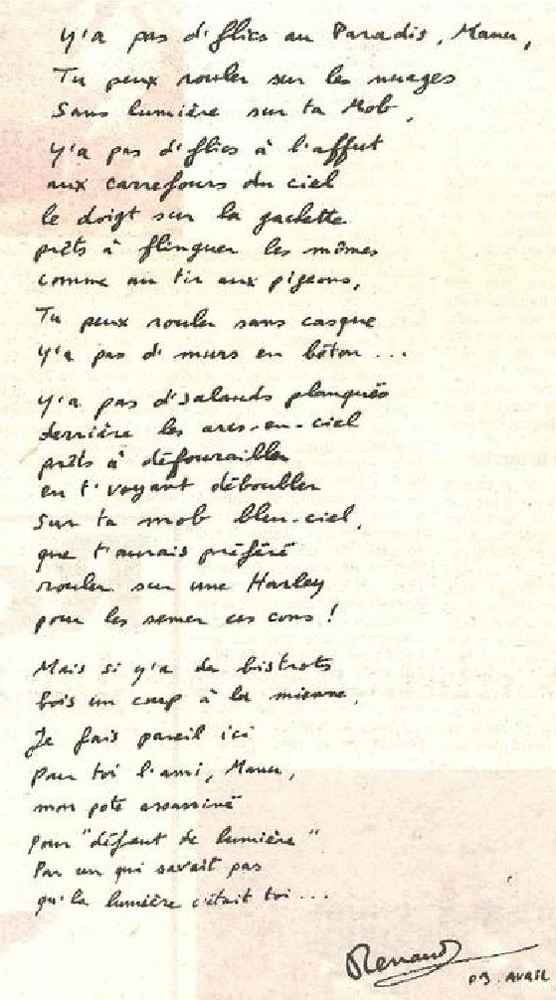 Y'a pas d'flics au Paradis, Manu,
Tu peux rouler sur les nuages
Sans lumière sur ta Mob,
Y'a pas d'flics à l'affut
aux carrefours du ciel
le doigt sur la gachette
prêts à flinguer les mômes
comme au tir aux pigeons,
Tu peux rouler sans casque
Y'a pas d'murs en béton...
Y'a pas d'salauds planqués
derrière les arcs-en-ciel
prêts à défourailler
en t'voyant débouler
Sur ta mob bleu-ciel,
que t'aurais préféré
rouler sur une Harley
pour les semer ces cons !
Mais si y'a des bistrots
bois un coup à la mienne,
Je fais pareil ici
Pour toi l'ami, Manu,
mon pote assassiné
Pour "défaut de lumière"
Par un qui savait pas
qu'la lumière c'était toi...
Renaud
03. AVRIL